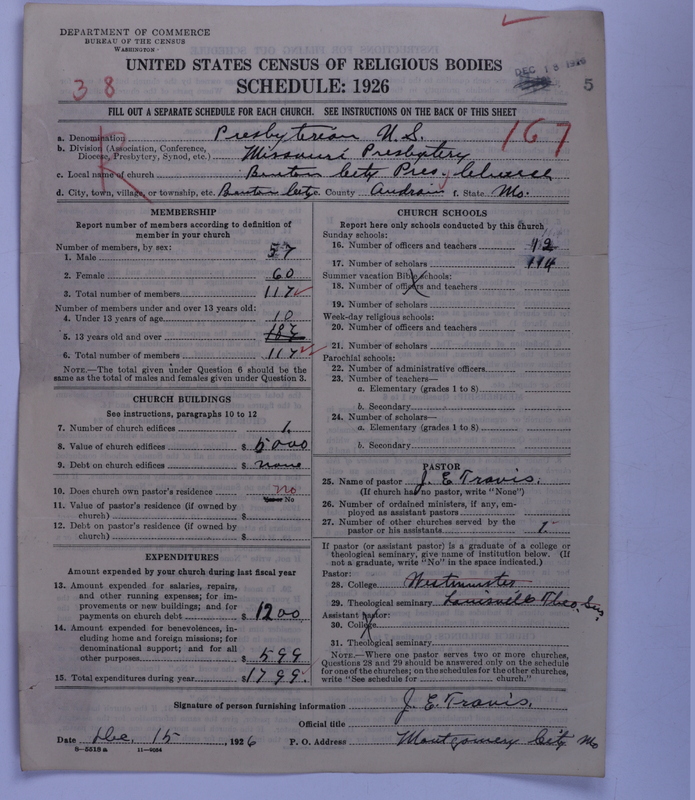 DEPARTMENT OF COMMERCE
BUREAU OF THE CENSUS
WASHINGTON
UNITED STATES CENSUS OF RELIGIOUS BODIES
SCHEDULE: 1926
DEC 18 1926
5
38
FILL OUT A SEPARATE SCHEDULE FOR EACH CHURCH. SEE INSTRUCTIONS ON THE BACK OF THIS SHEET
167
R
a. Denomination Presbyterian U.S.
b. Division (Association, Conference, Diocese, Presbytery, Synod, etc.) Missouri Presbytery
c. Local name of church Benton City Pres. Church
d. City, town, village, or township, etc. Benton City e. County Audrain f. State Mo.
MEMBERSHIP
Report number of members according to definition of
member in your church
Number of members, by sex:
1. Male 57
2. Female 60
3. Total number of members 117
Number of members under and over 13 years old:
4. Under 13 years of age 10
5. 13 years old and over
6. Total number of members 117
NOTE.—The total given under Question 6 should be
same as the total of males and females given under Question 3.
CHURCH BUILDINGS
See instructions, paragraphs 10 to 12
7. Number of church edifices 1.
8. Value of church edifices $ 5000
9. Debt on church edifices $ none
10. Does church own pastor's residence no
No
11. Value of pastor's residence (if owned by
church) $
12. Debt on pastor's residence (if owned by
church) $
EXPENDITURES
Amount expended by your church during last fiscal year
13. Amount expended for salaries, repairs,
and other running expenses; for im-
provements or new buildings; and for
payments on church debt $ 1200
14. Amount expended for benevolences, in-
cluding home and foreign missions; for
denominational support; and for all
other purposes $ 599
15. Total expenditures during year $ 1799.
CHURCH SCHOOLS
Report here only schools conducted by this church
Sunday schools:
16. Number of officers and teachers 12
17. Number of scholars 114
Summer vacation Bible schools:
18. Number of officers and teachers
19. Number of scholars
Week-day religious schools:
20. Number of officers and teachers
21. Number of scholars
Parochial schools:
22. Number of administrative officers
23. Number of teachers—
a. Elementary (grades 1 to 8)
b. Secondary
24. Number of scholars—
a. Elementary (grades 1 to 8)
b. Secondary
PASTOR
25. Name of pastor J. E. Travis.
(If church has no pastor, write "None")
26. Number of ordained ministers, if any, em-
ployed as assistant pastors
27. Number of other churches served by the
pastor or his assistants 1.
If pastor (or assistant pastor) is a graduate of a college or
theological seminary, give name of institution below. (If
not a graduate, write "No" in the space indicated.)
Pastor:
28. College Westminster
29. Theological seminary Louisville Theo. Sem.
Assistant pastor:
30. College
31. Theological seminary
NOTE.—Where one pastor serves two or more churches,
Questions 28 and 29 should be answered only on the schedule
for one of the churches; on the schedules for the other churches,
write "See schedule for church."
Signature of person furnishing information J. E. Travis.
Official title
Date Dec. 15, 1926 P. O. Address Montgomery City Mo
6-5519a 11-9084